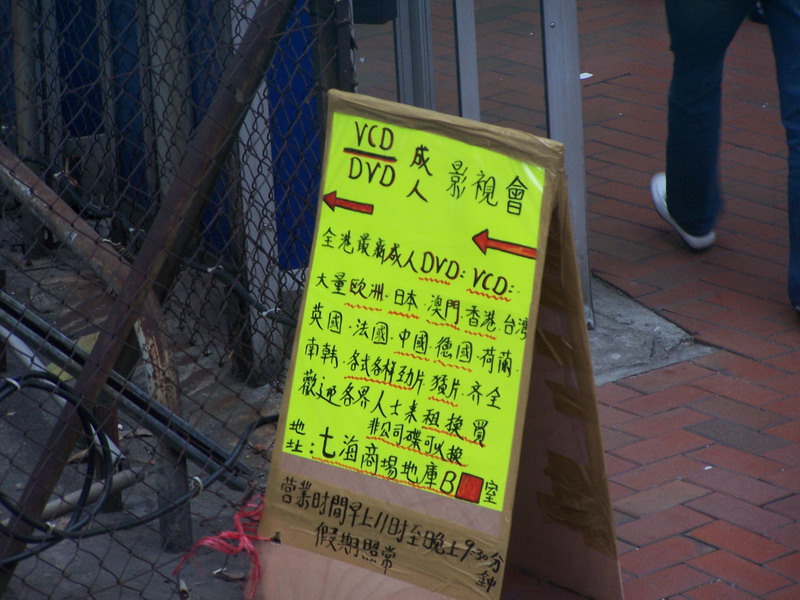 VCD
DVD
成人
影視會
全港最新成人DVD: VCD:
大量歐洲.日本.澳門.香港.台灣
英國.法國.中國.德國.荷蘭.
南韩.各式各样劲片.猛片.齐全
歡迎各界人士来租換買
非公司碟可以換
地址:七海商場地庫B 室
营業时間早上11时至晚上9:30分鈡
假期照常